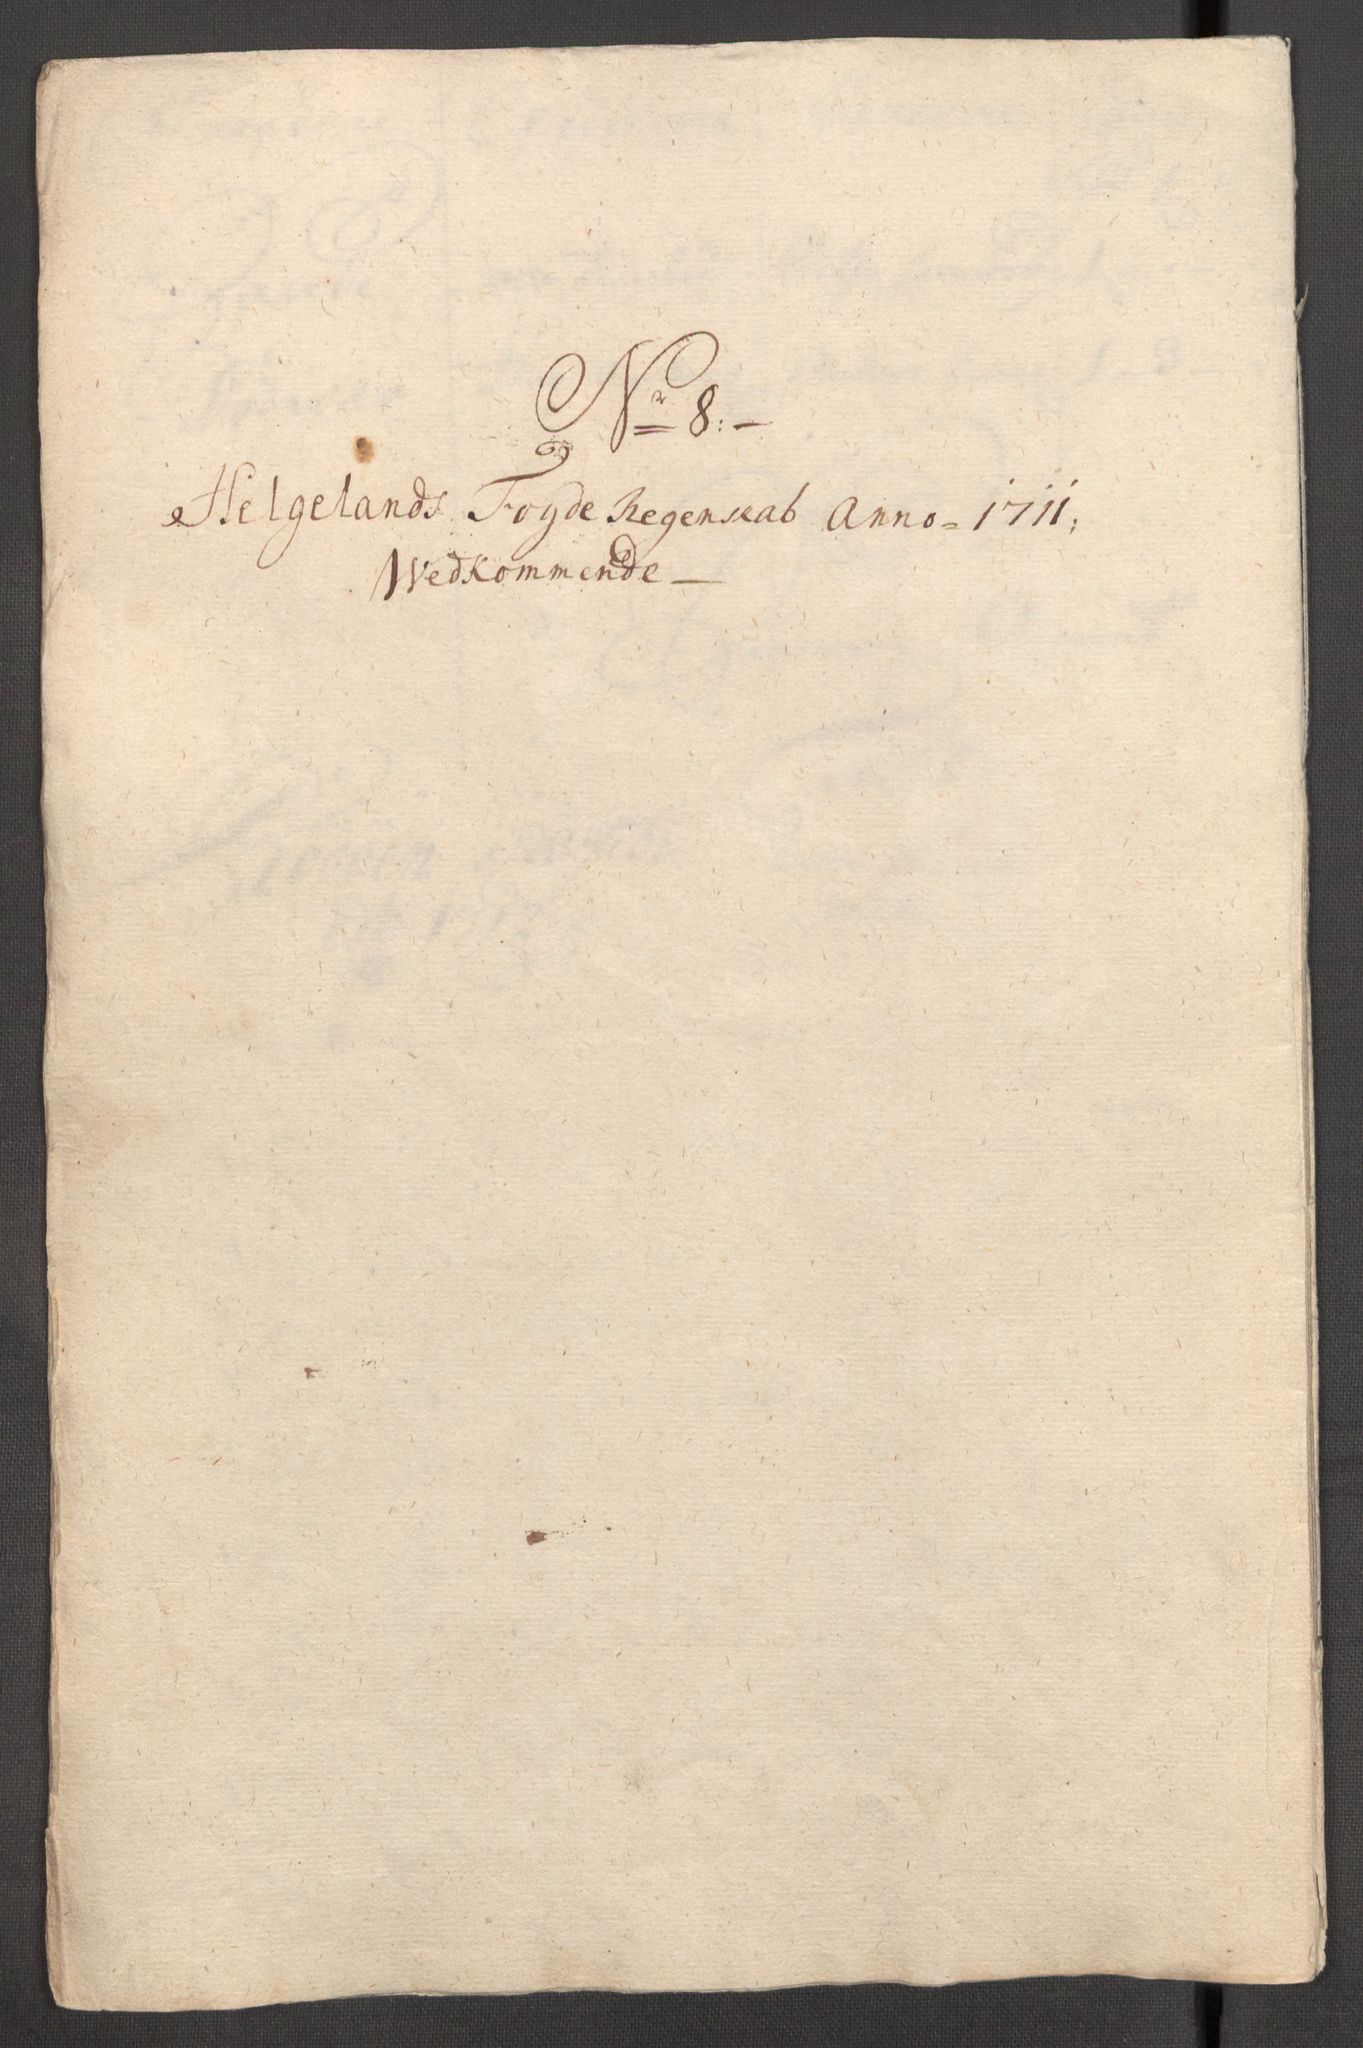 Nr 8:-
Helgelands Fogde Regenskab Anno= 1711;
Wedkommende —